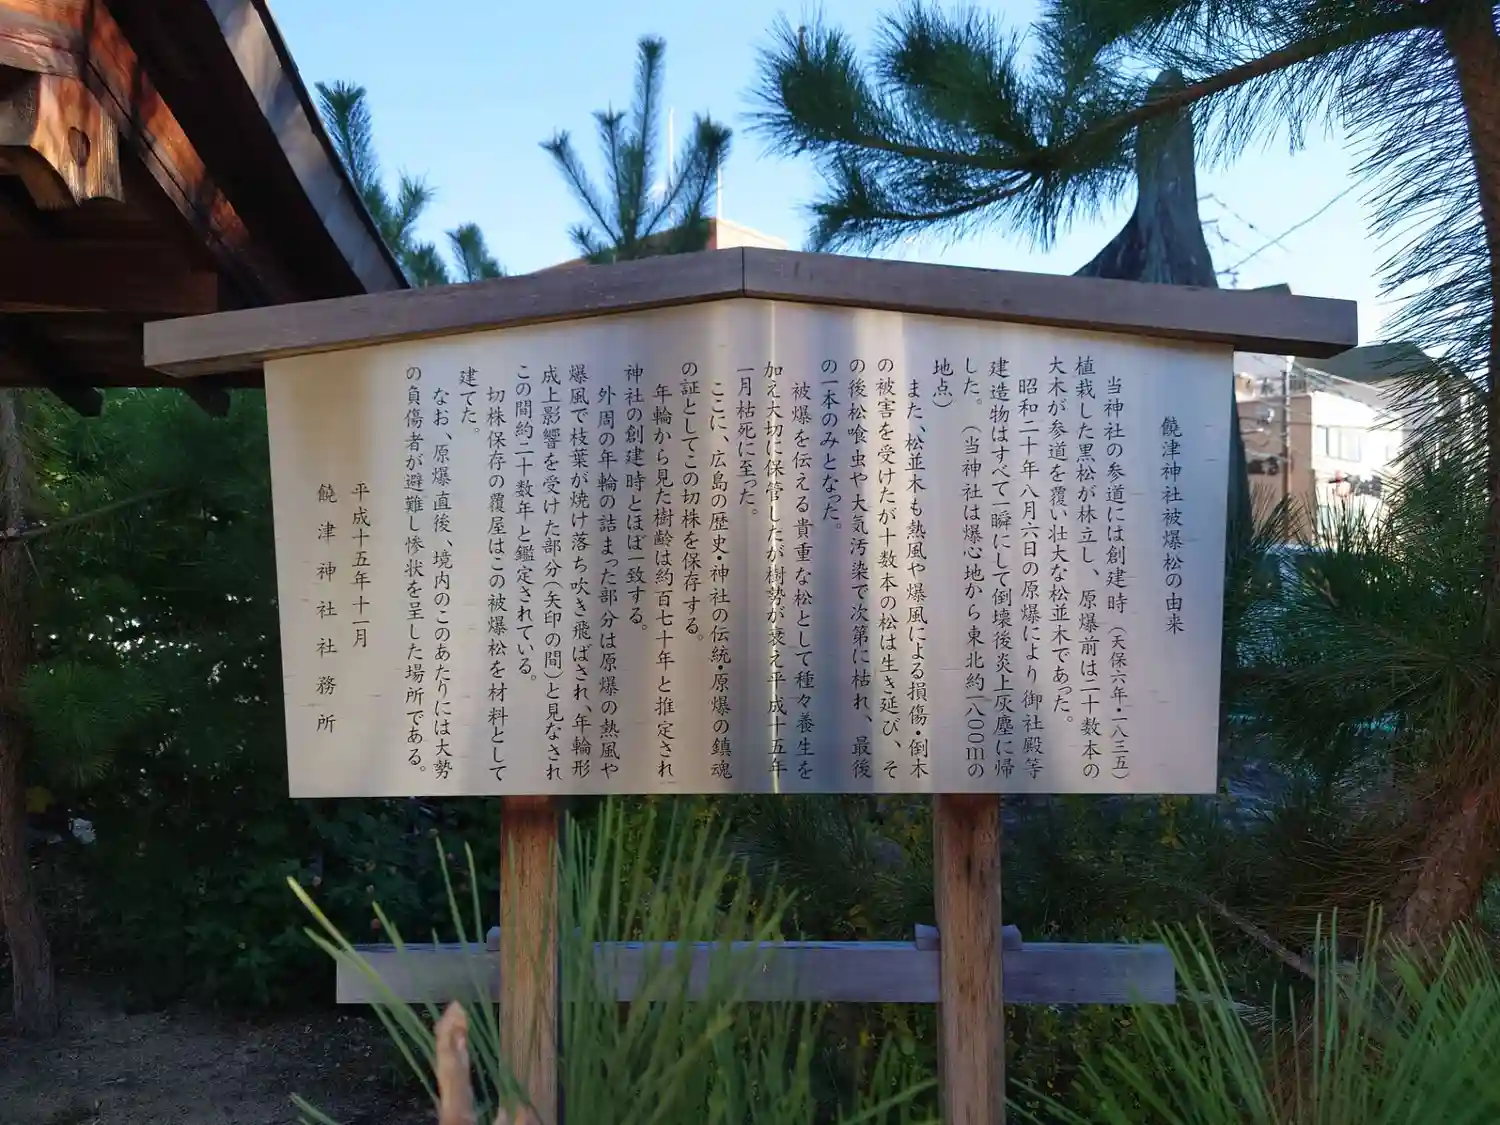 饒津神社被爆松の由来
当神社の参道には創建時（天保六年・一八三五）
植栽した黒松が林立し、原爆前は二十数本の
大木が参道を覆い、壮大な松並木であった。
昭和二十年八月六日の原爆により御社殿等
建造物はすべて一瞬にして倒壊後炎上灰塵に帰
した。（当神社は爆心地から東北約一八〇〇ｍの
地点）
また、松並木も熱風や爆風による損傷・倒木
の被害を受けたが十数本の松は生き延び、そ
の後松喰虫や大気汚染で次第に枯れ、最後
の一本のみとなった。
被爆を伝える貴重な松として種々養生を
加え大切に保管したが樹勢が衰え平成十五年
一月枯死に至った。
ここに、広島の歴史・神社の伝統・原爆の鎮魂
の証としてこの切株を保存する。
年輪から見た樹齢は約百七十年と推定され
神社の創建時とほぼ一致する。
外周の年輪の詰まった部分は原爆の熱風や
爆風で枝葉が焼け落ち吹き飛ばされ、年輪形
成上影響を受けた部分（矢印の間）と見なされ
この間約二十数年と鑑定されている。
切株保存の覆屋はこの被爆松を材料として
建てた。
なお、原爆直後、境内のこのあたりには大勢
の負傷者が避難し惨状を呈した場所である。
平成十五年十一月
饒津神社社務所